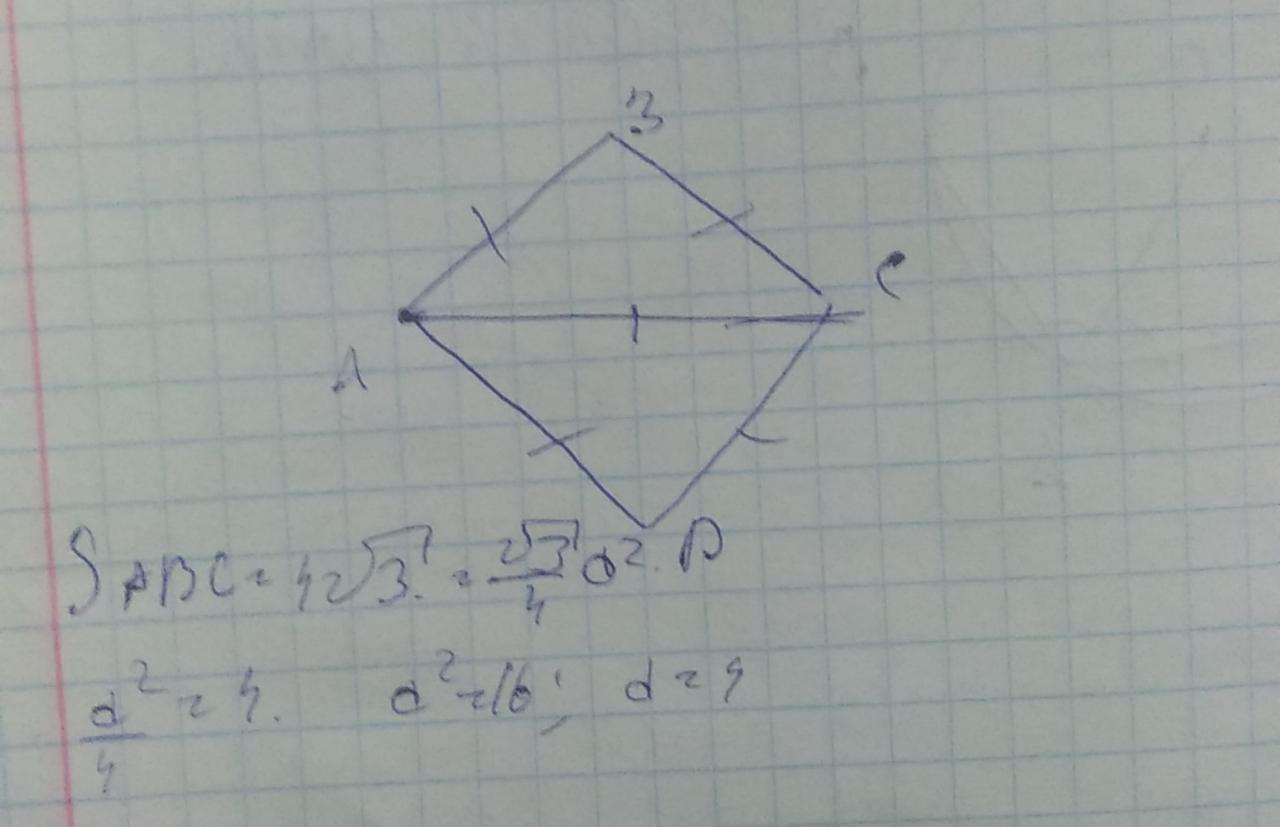 B
C
A
D
S ABC = 4√3 = √3/4 a².
a²/4 = 4. a² = 16; a = 4